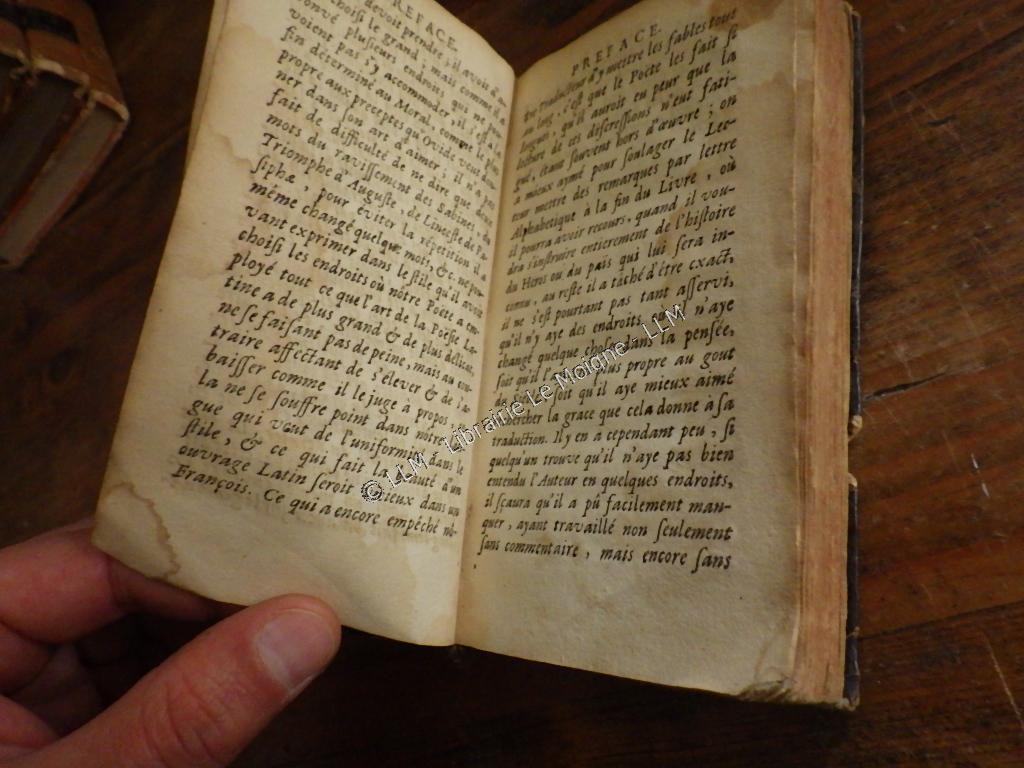 PREFACE.
devoit prendre, il avoit d'a-
choisi le grand; mais comme il a
trouvé plusieurs endroits qui ne pou-
voient pas s'y accommoder, il s'est à la
fin déterminé au Moral, comme le plus
propre aux preceptes qu'Ovide veut don-
ner dans son art d'aimer; il n'a pas
fait de difficulté de ne dire que deux
mots du ravissement des Sabines, du
Triomphe d'Auguste, de l'inceste de Pa-
siphæ, pour éviter la répetition il a
même changé quelque mots, & ne pou-
vant exprimer dans le stile qu'il avoit
choisi les endroits où nôtre Poëte a em-
ployé tout ce que l'art de la Poësie La-
tine a de plus grand & de plus délicat,
ne se faisant pas de peine, mais au con-
traire affectant de s'élever & de s'a-
baisser comme il le juge à propos;
La ne se souffre point dans nôtre lan-
gue qui veut de l'uniformité dans le
stile, & ce qui fait la beauté d'un
ouvrage Latin seroit vicieux dans un
François. Ce qui a encore empêché nô-
PREFACE.
tre Traducteur d'y mettre les fables tout
au long, c'est que le Poëte les fait si
longues, qu'il auroit eu peur que la
lecture de ces discressions n'eut fati-
gué, étant souvent hors d'œuvre; on
a mieux aymé pour soulager le Lec-
teur mettre des remarques par lettre
Alphabetique à la fin du Livre, où
il pourra avoir recours, quand il vou-
dra s'instruire entierement de l'histoire
du Heros ou du païs qui lui sera in-
connu, au reste il a tâché d'être exact,
il ne s'est pourtant pas tant asservi,
qu'il n'y aye des endroits où il n'aye
changé quelque chose dans la pensée,
soit qu'il l'ait plus propre au gout
de soit qu'il aye mieux aimé
chercher la grace que cela donne à sa
traduction. Il y en a cependant peu, si
quelqu'un trouve qu'il n'aye pas bien
entendu l'Auteur en quelques endroits,
il sçaura qu'il a pû facilement man-
quer, ayant travaillé non seulement
sans commentaire, mais encore sans
© LLM - Librairie Le Moigne - LLM